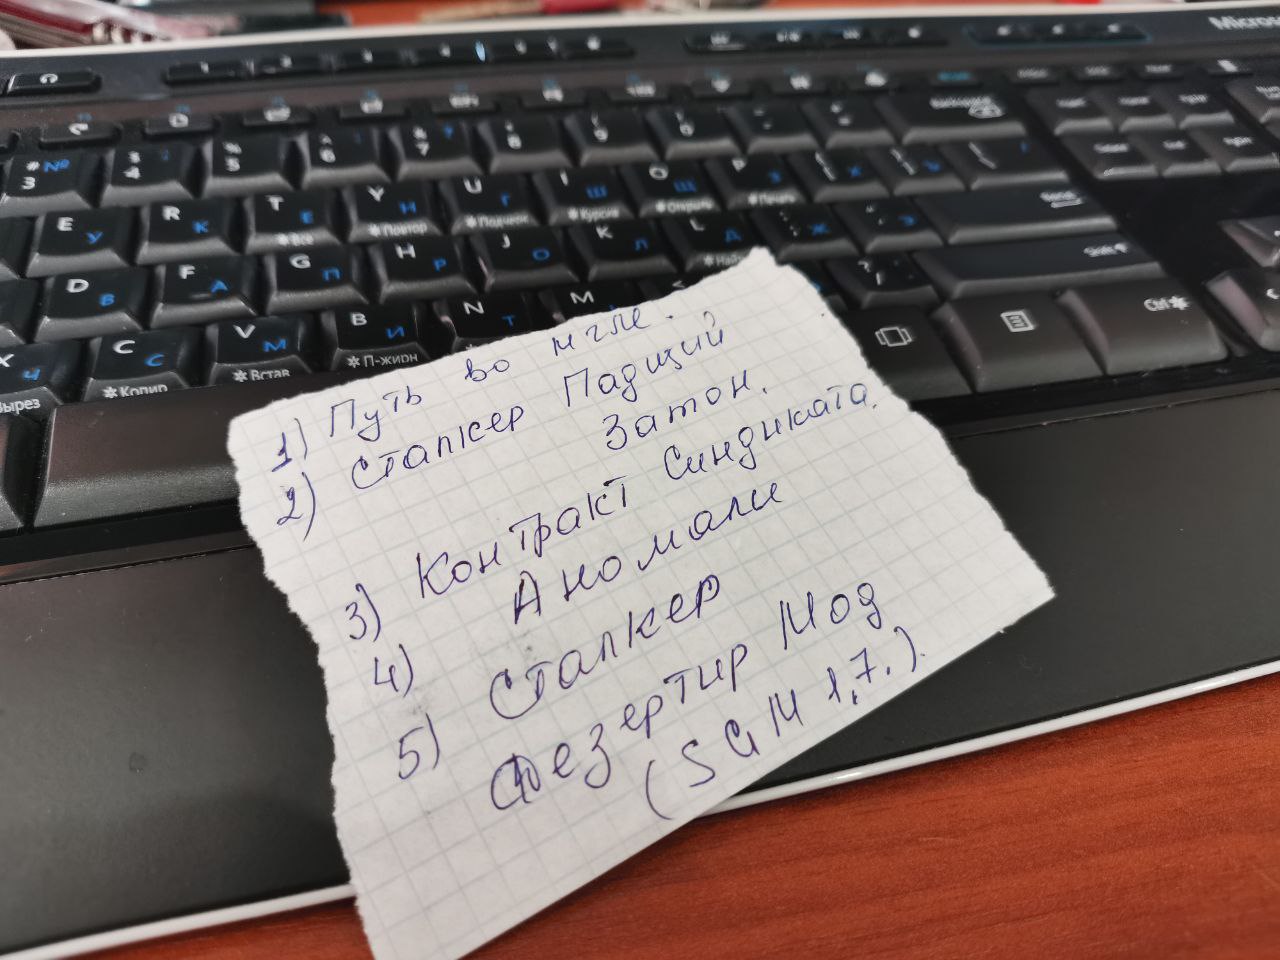 Microso
# № 3
$ ; 4
% 5
^ : 6
& ? 7
* 8
( 9
) 0
Backspace
E У
R К
T Е
Y Н
U Г
I Ш
O Щ
P З
{ [ Х
} ] Ъ
*Все
*Повтор
*Подчерк
*Курсив
*Открыть
*Печать
D В
F А
G П
H Р
J О
K Л
L Д
Ж
Э
Shift
X Ч
C С
V М
B И
N Т
M
<
Ctrl
Вырез
*Копир
*Встав
*П-жирн
1) Путь во мгле.
2) Сталкер Падщий
Затон.
3) Контракт Синдиката.
4) Аномали
5) Сталкер
Дезертир Мод
(SGM 1,7.).